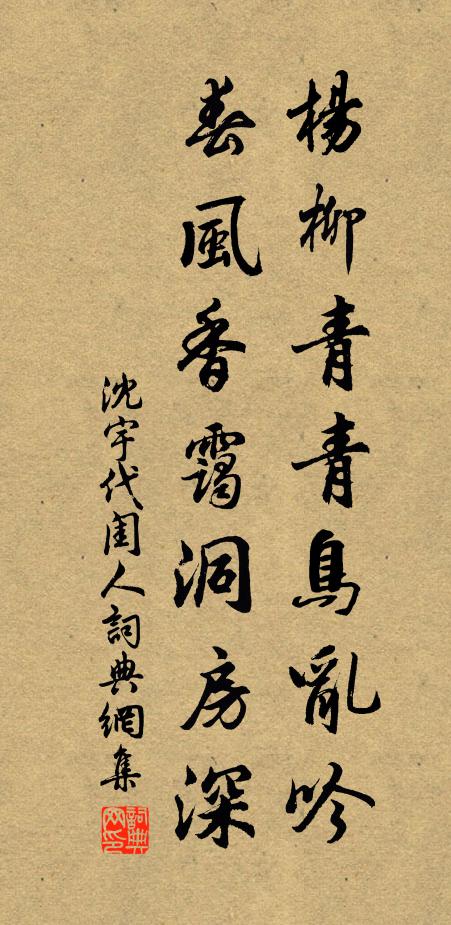 楊柳青青鳥亂吟
春風香靄洞房深
沈宇代閨人詞典網集
詞典网印